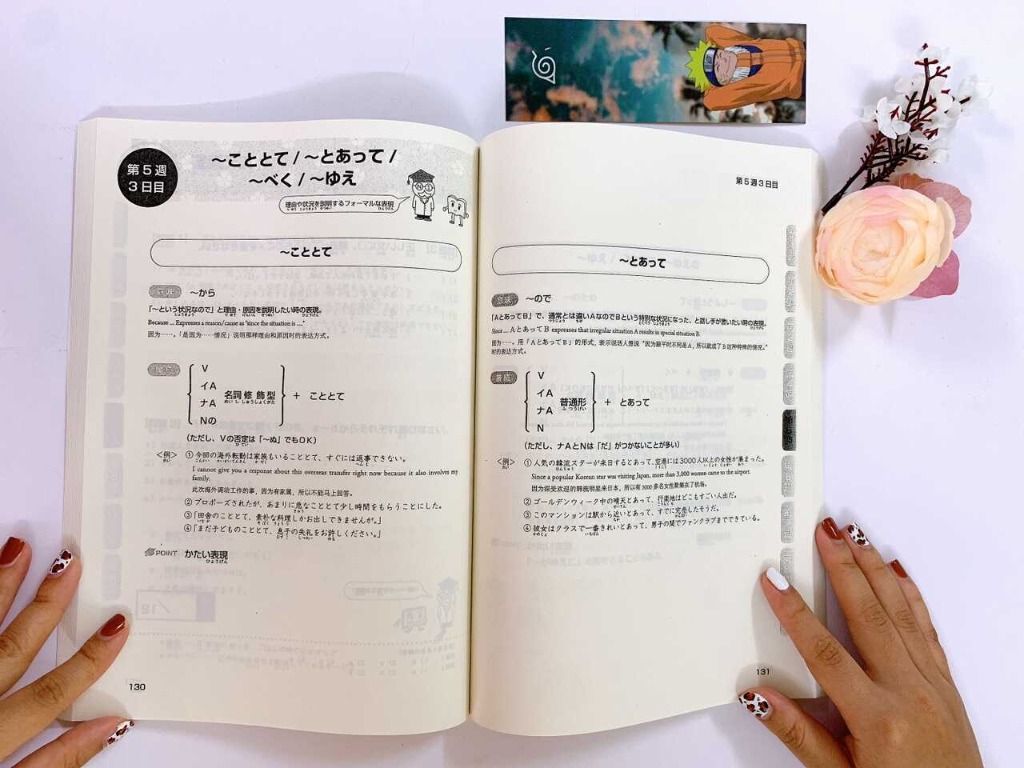 第5週
3日目
～こととて / ～とあって /
～べく / ～ゆえ
理由や状況を説明するフォーマルな表現
～こととて
意味 ～から
「～という状況なので」と理由・原因を説明したい時の表現。
Because ... Expresses a reason/cause as "since the situation is ...."
因为……。「是因为……情况」说明那种理由和原因时的表达方式。
接続
V
イA
ナA 名詞修飾型 + こととて
Nの
(ただし、Vの否定は「～ぬ」でもOK)
〈例〉
①今回の海外転勤は家族もいることとて、すぐには返事できない。
I cannot give you a response about this overseas transfer right now because it also involves my
family.
此次海外调动工作的事，因为有家属，所以不能马上回答。
②プロポーズされたが、あまりに急なこととて少し時間をもらうことにした。
③「田舎のこととて、素朴な料理しかお出しできませんが。」
④「まだ子どものこととて、息子の失礼をお許しください。」
POINT かたい表現
130
第5週3日目
～とあって
意味 ～ので
「AとあってB」で、通常とは違いAなのでBという特別な状況になった、と話し手が言いたい時の表現。
Since ... AとあってB expresses that irregular situation A results in special situation B.
因为……。用「AとあってB」的形式，表示说话人想说"因为跟平时不同是A，所以就成了B这种特殊的情况。"
时的表达方式。
接続
V
イA
ナA 普通形 + とあって
N
(ただし、ナAとNは「だ」がつかないことが多い)
〈例〉
①人気の韓流スターが来日するとあって、空港には3000人以上の女性が集まった。
Since a popular Korean star was visiting Japan, more than 3,000 women came to the airport.
因为深受欢迎的韩流明星来日本，所以有3000多名女性聚集在了机场。
②ゴールデンウィーク中の晴天とあって、行楽地はどこもすごい人出だ。
③このマンションは駅から近いとあって、すでに完売したそうだ。
④彼女はクラスで一番きれいとあって、男子の間でファンクラブまでできている。
第5週
131